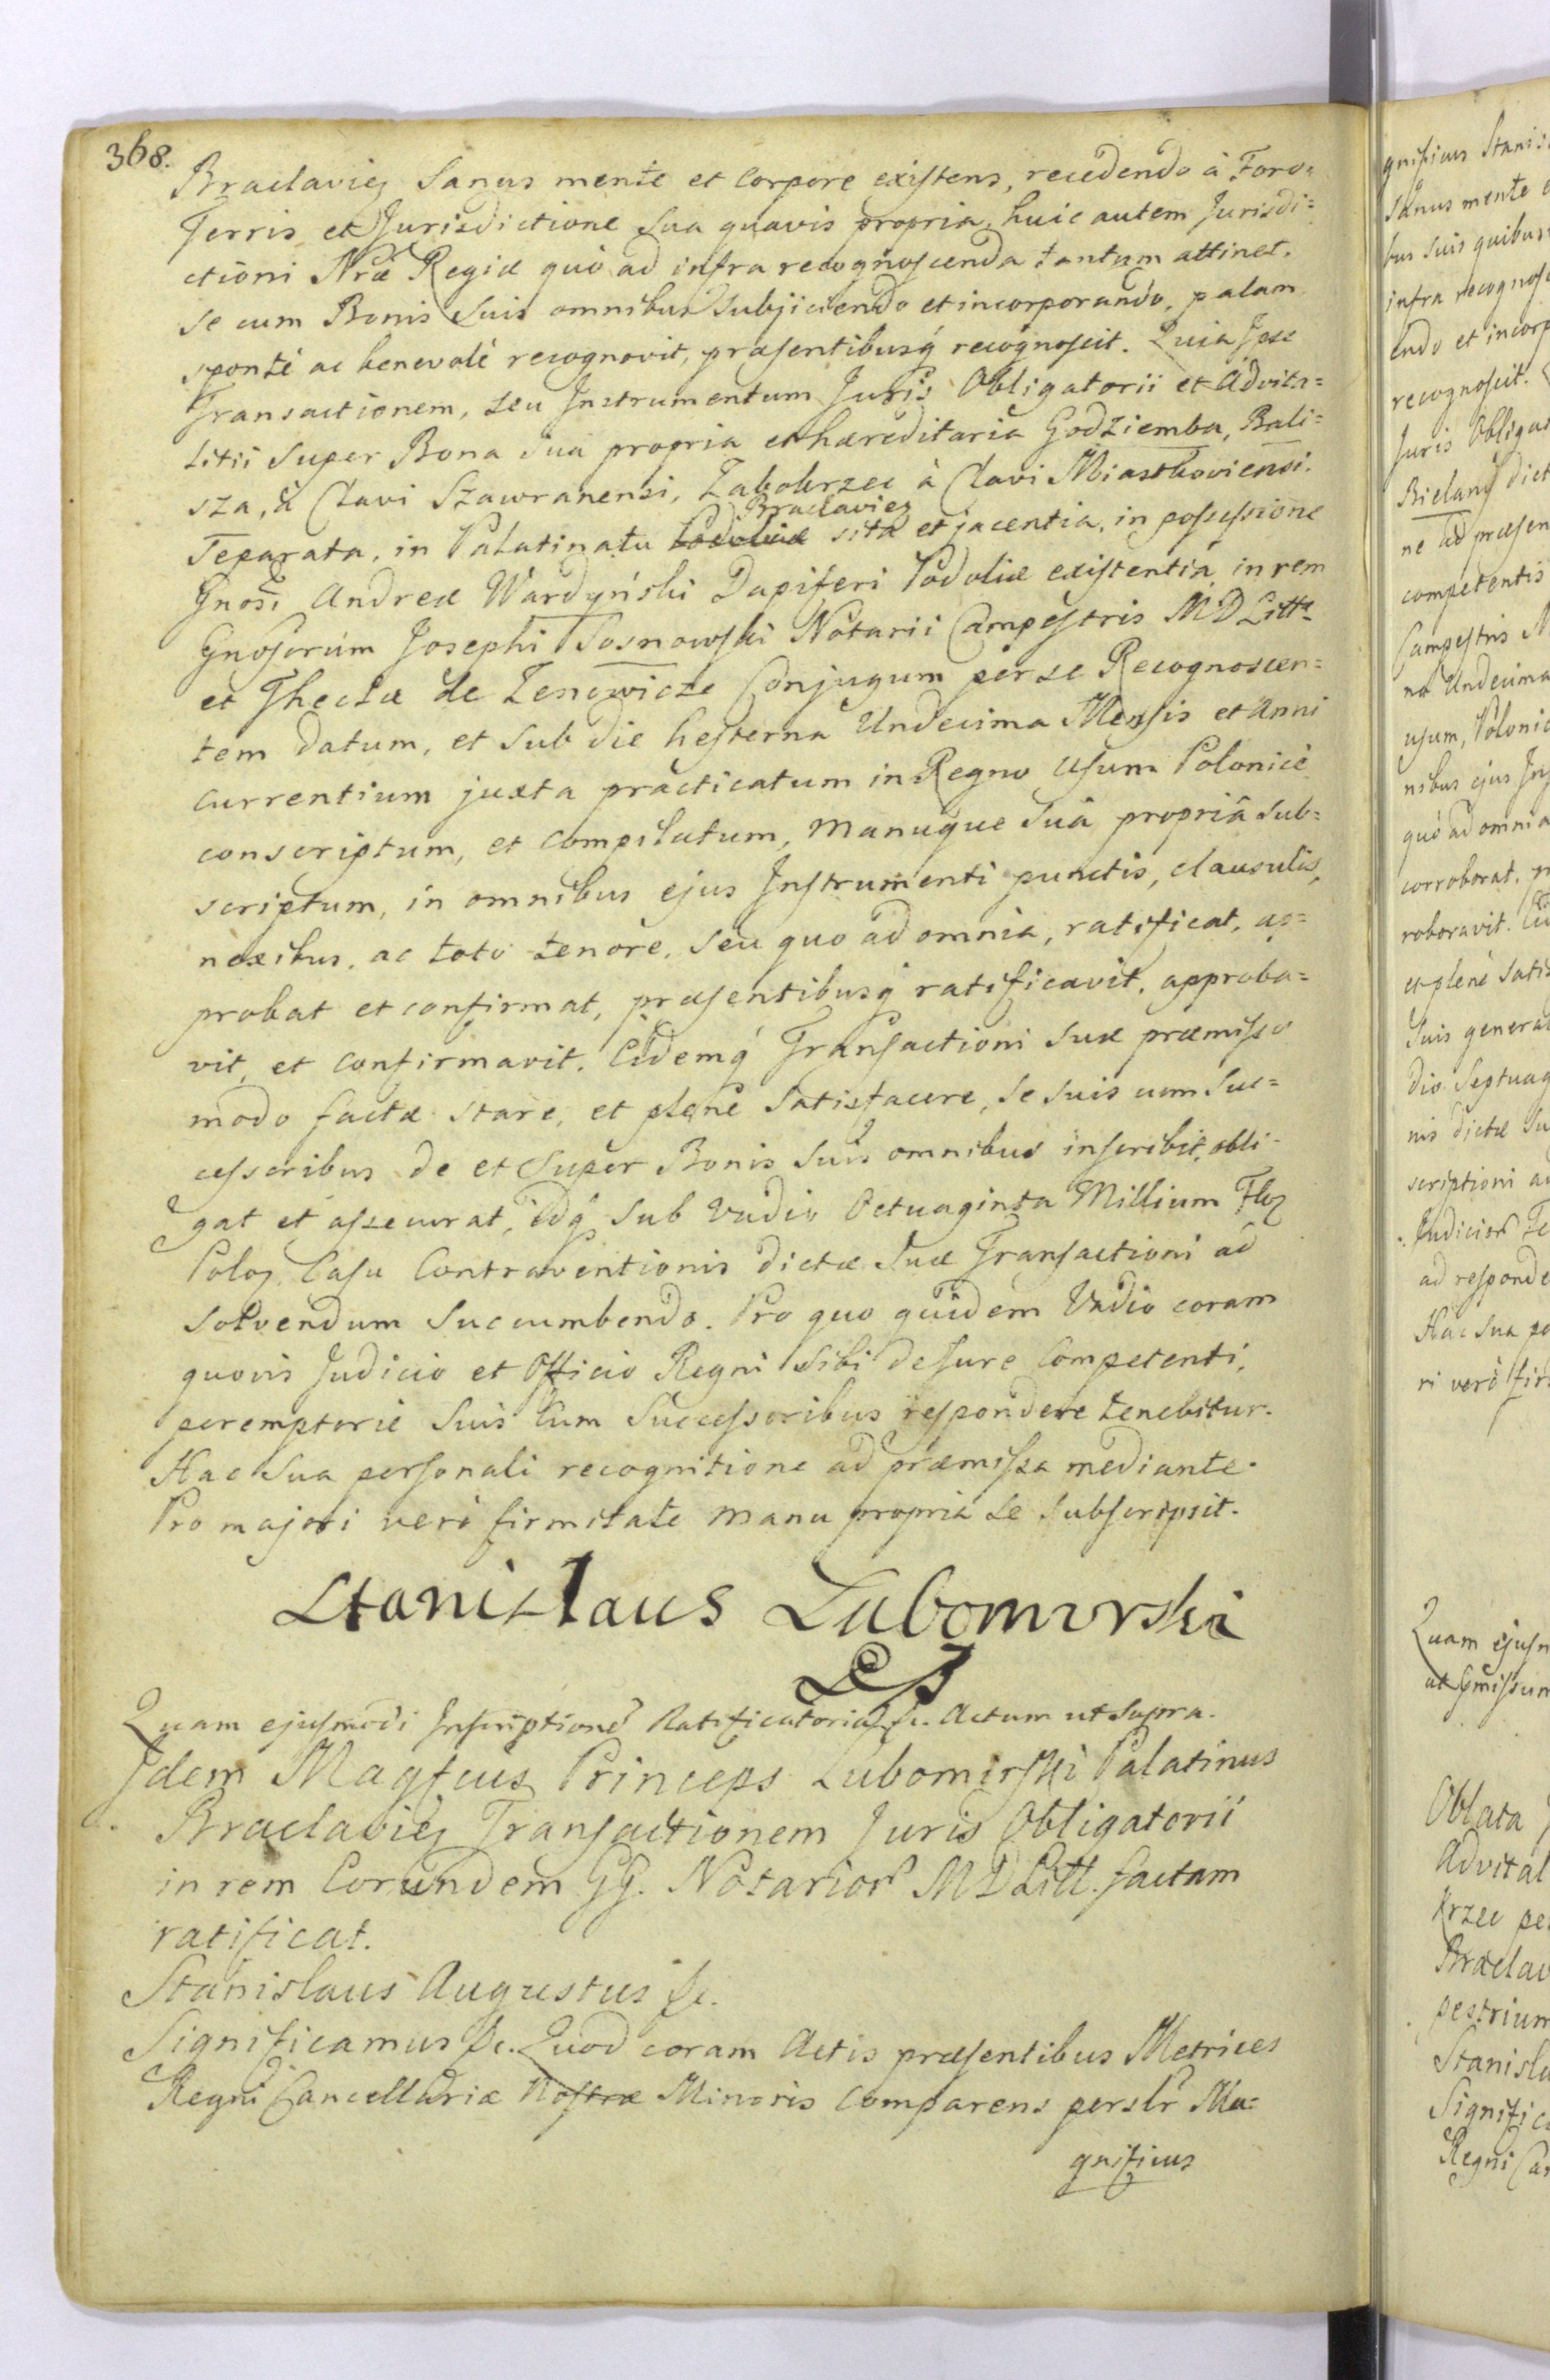 368.
Braclavień Sanus mente et Corpore existens, recedendo à Foro,
Terris et Jurisdictione Sua quavis propria, huic autem Jurisdi=
ctioni Nræ Regiæ quò ad infra recognoscenda tantum attinet.
se cum Bonis Suis omnibus Subjiciendo et incorporando, palam
spontè ac benevolè recognovit, præsentibusq́ recognoscit. Quia Ipse
Transactionem, seu Instrumentum Juris Obligatorii et Advita=
litii Super Bona Sua propria et hæreditaria Godziemba, Bali=
sza, à Clavi Szawranensi, Zabokrzec à Clavi Miastkoviensi.
Separata, in Palatinatu Podoliæ Braclavień sita et jacentia, in possessione
Gnosi Andreæ Wardyński Dapiferi Podoliæ existentia, in rem
Gnosorum Josephi Sosnowski Notarii Campestris MD Litt.
et Theclæ de Zenowicze Conjugum per se Recognoscen=
tem datum, et Sub die hesterna Undecima Mensis et Anni
Currentium juxta practicatum in Regno Usum Polonicè
conscriptum, et Compilatum, Manuque Suâ propriâ Sub=
scriptum, in omnibus ejus Instrumenti punctis, clausulis,
nexibus, ac toto tenore, Seu quo ad omnia, ratificat, ap=
probat et confirmat, præsentibusq́ ratificavit, approba=
vit, et Confirmavit. Eidemq́ Transactioni Suæ præmisso
modo factæ stare, et plenè Satisfacere, Se Suis cum Suc=
cessoribus de et Super Bonis Suis omnibus inscribit, obli=
gat et assecurat, idq́ Sub Vadio Octuaginta Millium Floz
Poloz Casu Contraventionis dictæ Suæ Transactioni ad
solvendum Succumbendo. Pro quo quidem Vadio coram
quovis Judicio et Officio Regni Sibi de Jure Competenti,
peremptoriè Suis Cum Successoribus respondere tenebitur.
Hac Sua personali recognitione ad præmissa mediante.
Pro majori verò firmitate manu propriâ Se Subscripsit.
Stanislaus Lubomirski
Quam ejusmodi Inscriptione Ratificatoria &c. Actum ut Supra.
Idem Magfcus Princeps Lubomirski Palatinus
Braclavień Transactionem Juris Obligatorii
in rem Eorundem GG. Notarior MD Litt. factam
ratificat.
Stanislaus Augustus &c.
Significamus &c. Quod coram Actis præsentibus Metrices
Regni Cancellariæ Nostræ Minoris Comparens perslr Ma=
gnificus
gnificus Stanis
Sanus mente e
bus Suis quibus
infra recognosc
endo et incorp
recognoscit.
Juris Obligat
Bielany dict
ne ad præsen
competentis
Campestris M
na Undecima
usum, Polonic
nibus ejus Ins
quò ad omnia
corroborat, p
roboravit.
et plenè Satis
Suis general
dio Septuag
nis dictæ Su
scriptioni
Judicior Te
ad responde
Hac Sua pe
ri verò fir
Quam ejusm
Oblata
Advital
krzec pe
Braclav
pestrium
Stanisla
Signific
Regni Ca